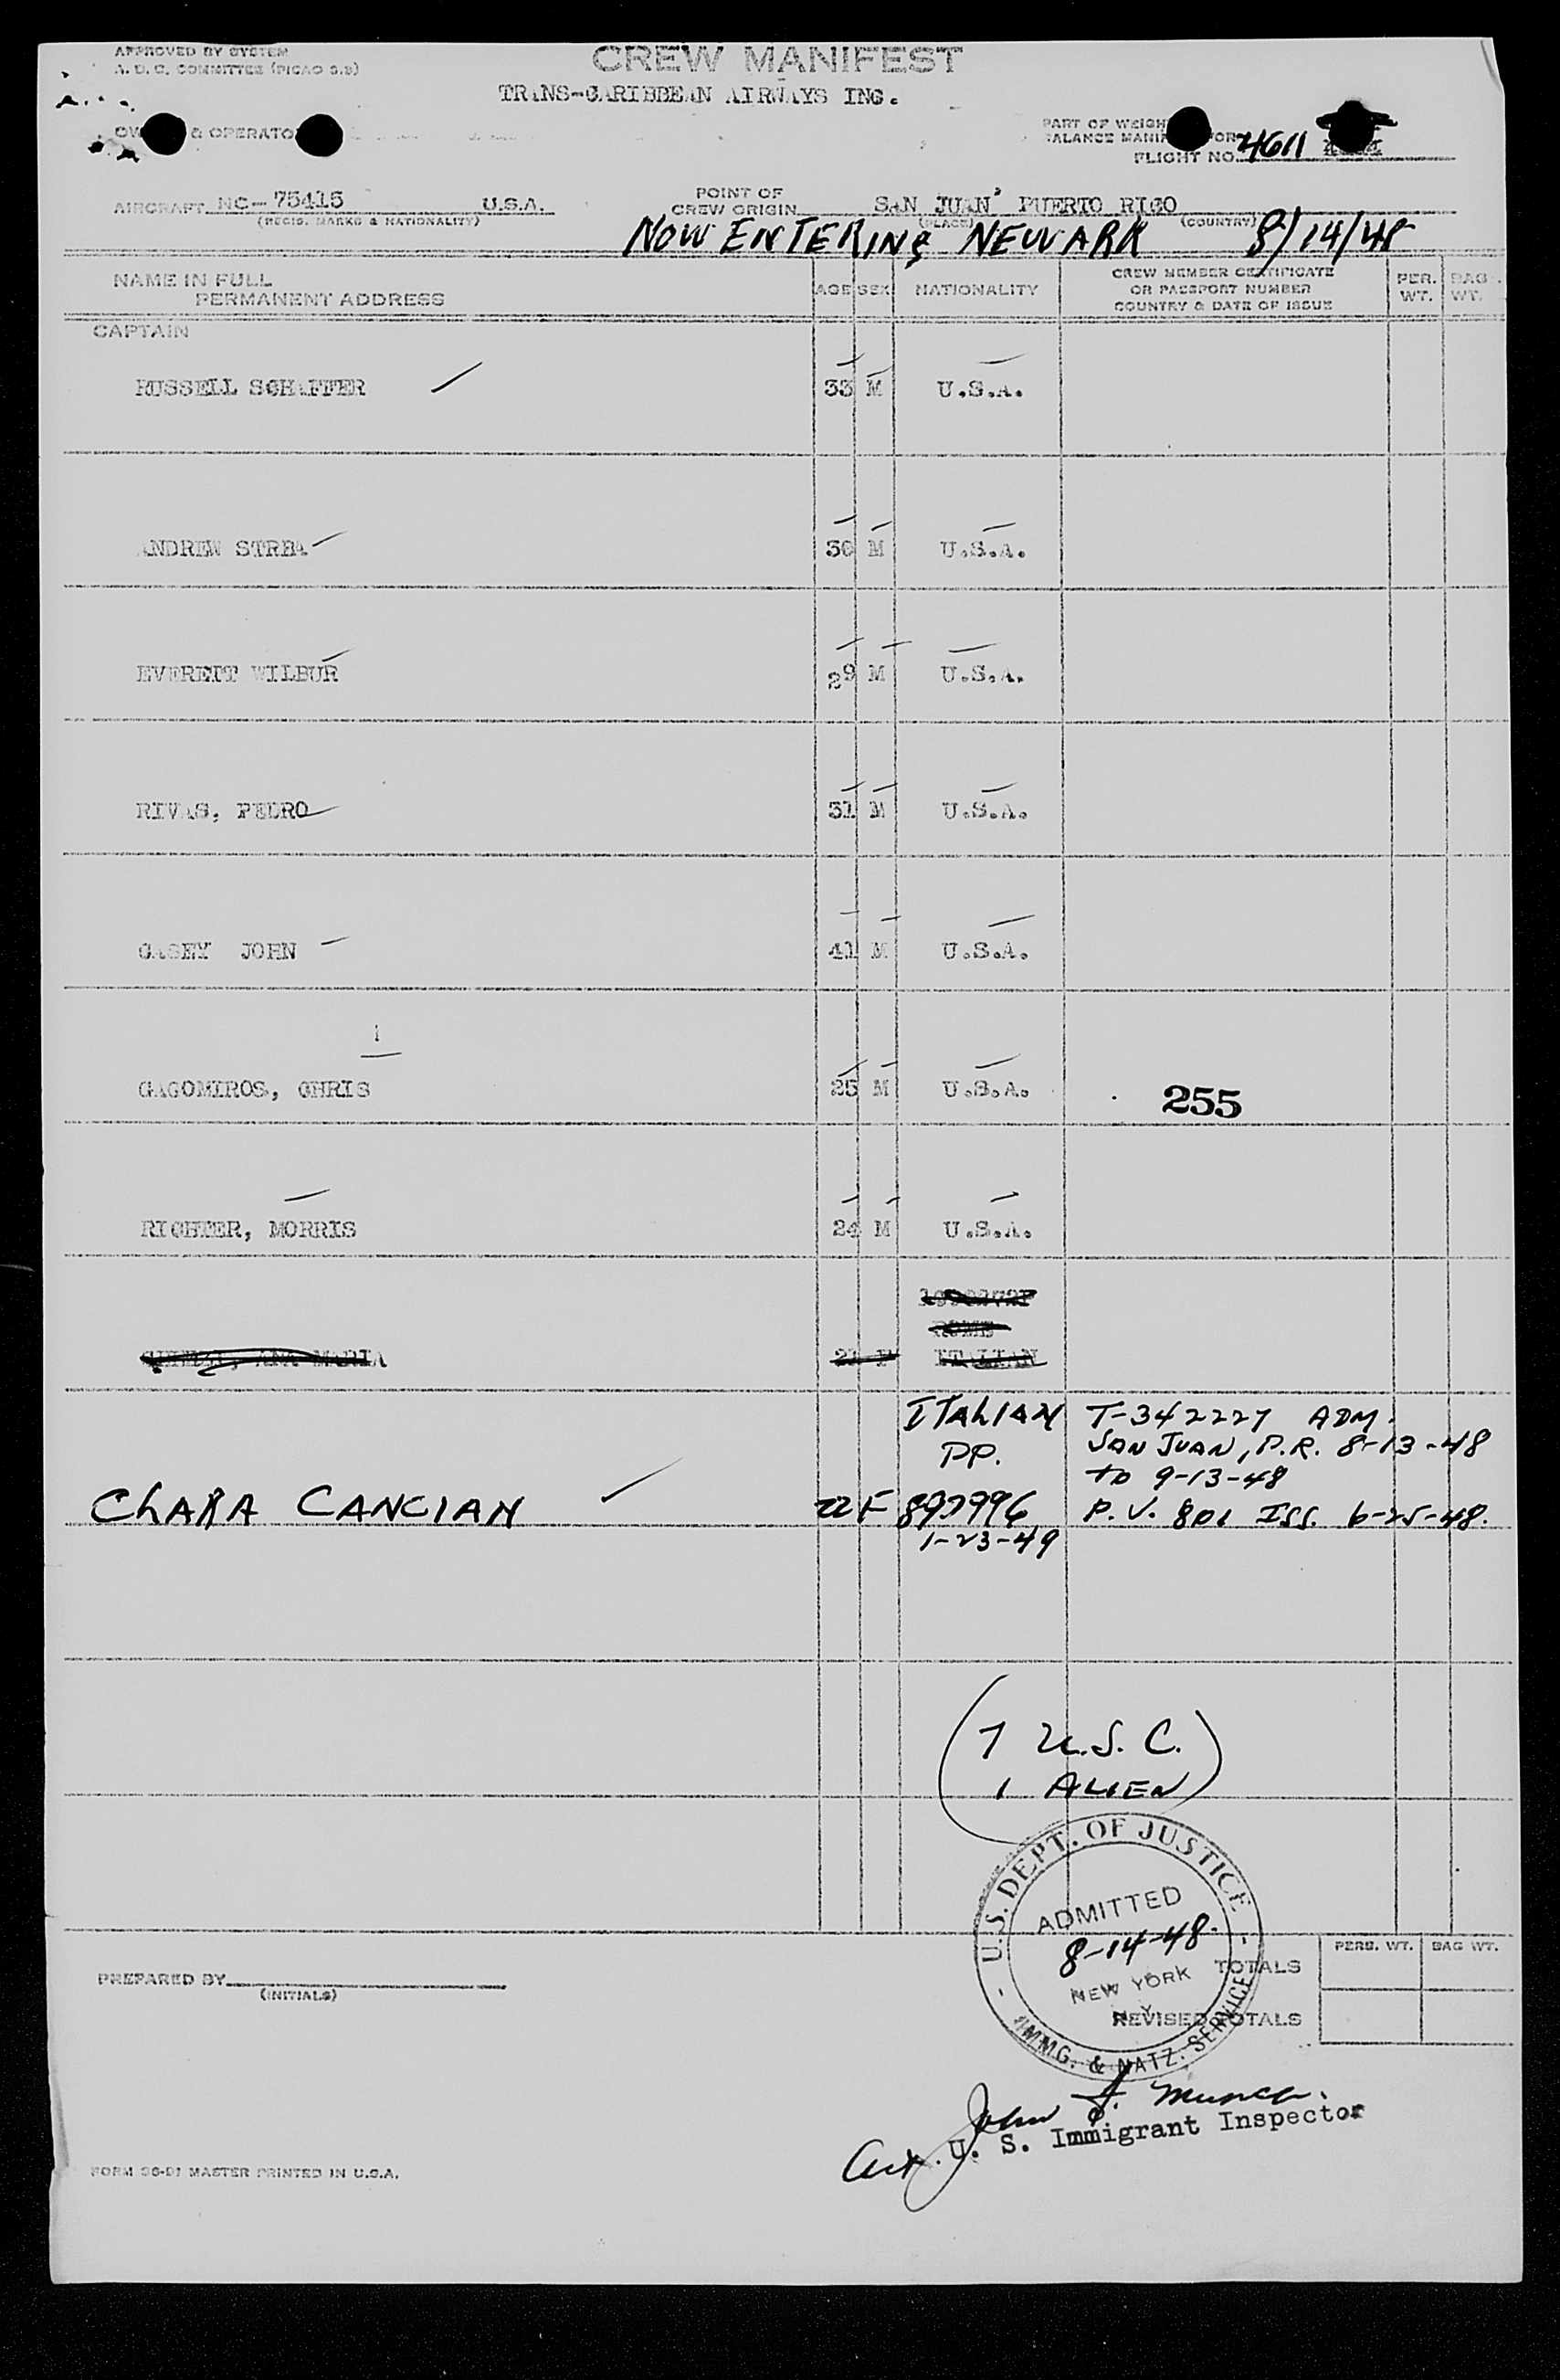 APPROVED BY SYSTEM
A. D. C. COMMITTEE (PICAO 8.9)
CREW MANIFEST
TRANS-CARIBBEAN AIRWAYS INC.
& OPERATO
PART OF WEIGH
FLIGHT NO. 4611
AIRCRAFT NC-75415 U.S.A.
(REGIS. MARKS & NATIONALITY)
POINT OF
CREW ORIGIN SAN JUAN PUERTO RICO
(PLACE) (COUNTRY)
NOW ENTERING NEWARK 8/14/48
NAME IN FULL
PERMANENT ADDRESS
AGE SEX NATIONALITY
CREW MEMBER CERTIFICATE
OR PASSPORT NUMBER
COUNTRY & DATE OF ISSUE
PER. WT.
BAG. WT.
CAPTAIN
RUSSELL SCHAFFER 33 M U.S.A.
ANDREW 30 M U.S.A.
EVERETT WILBUR 29 M U.S.A.
RIVAS, PEDRO 31 M U.S.A.
CASEY JOHN 41 M U.S.A.
GAGOMIROS, CHRIS 25 M U.S.A.
255
RICHTER, MORRIS 24 M U.S.A.
ROME
ANA MARIA 21 F ITALIAN
ITALIAN T-342227 ADM.
PP. SAN JUAN, P.R. 8-13-48
to 9-13-48
CLARA CANCIAN 22 F 897996 P.V. 801 ISS. 6-25-48.
1-23-49
(7 U.S.C.
1 ALIEN)
U.S. DEPT. OF JUSTICE
ADMITTED
8-14-48.
NEW YORK
N.Y.
IMMG. & NATZ. SERVICE
PERS. WT. BAG WT.
TOTALS
REVISED TOTALS
PREPARED BY
(INITIALS)
John
U. S. Immigrant Inspector
MASTER PRINTED IN U.S.A.